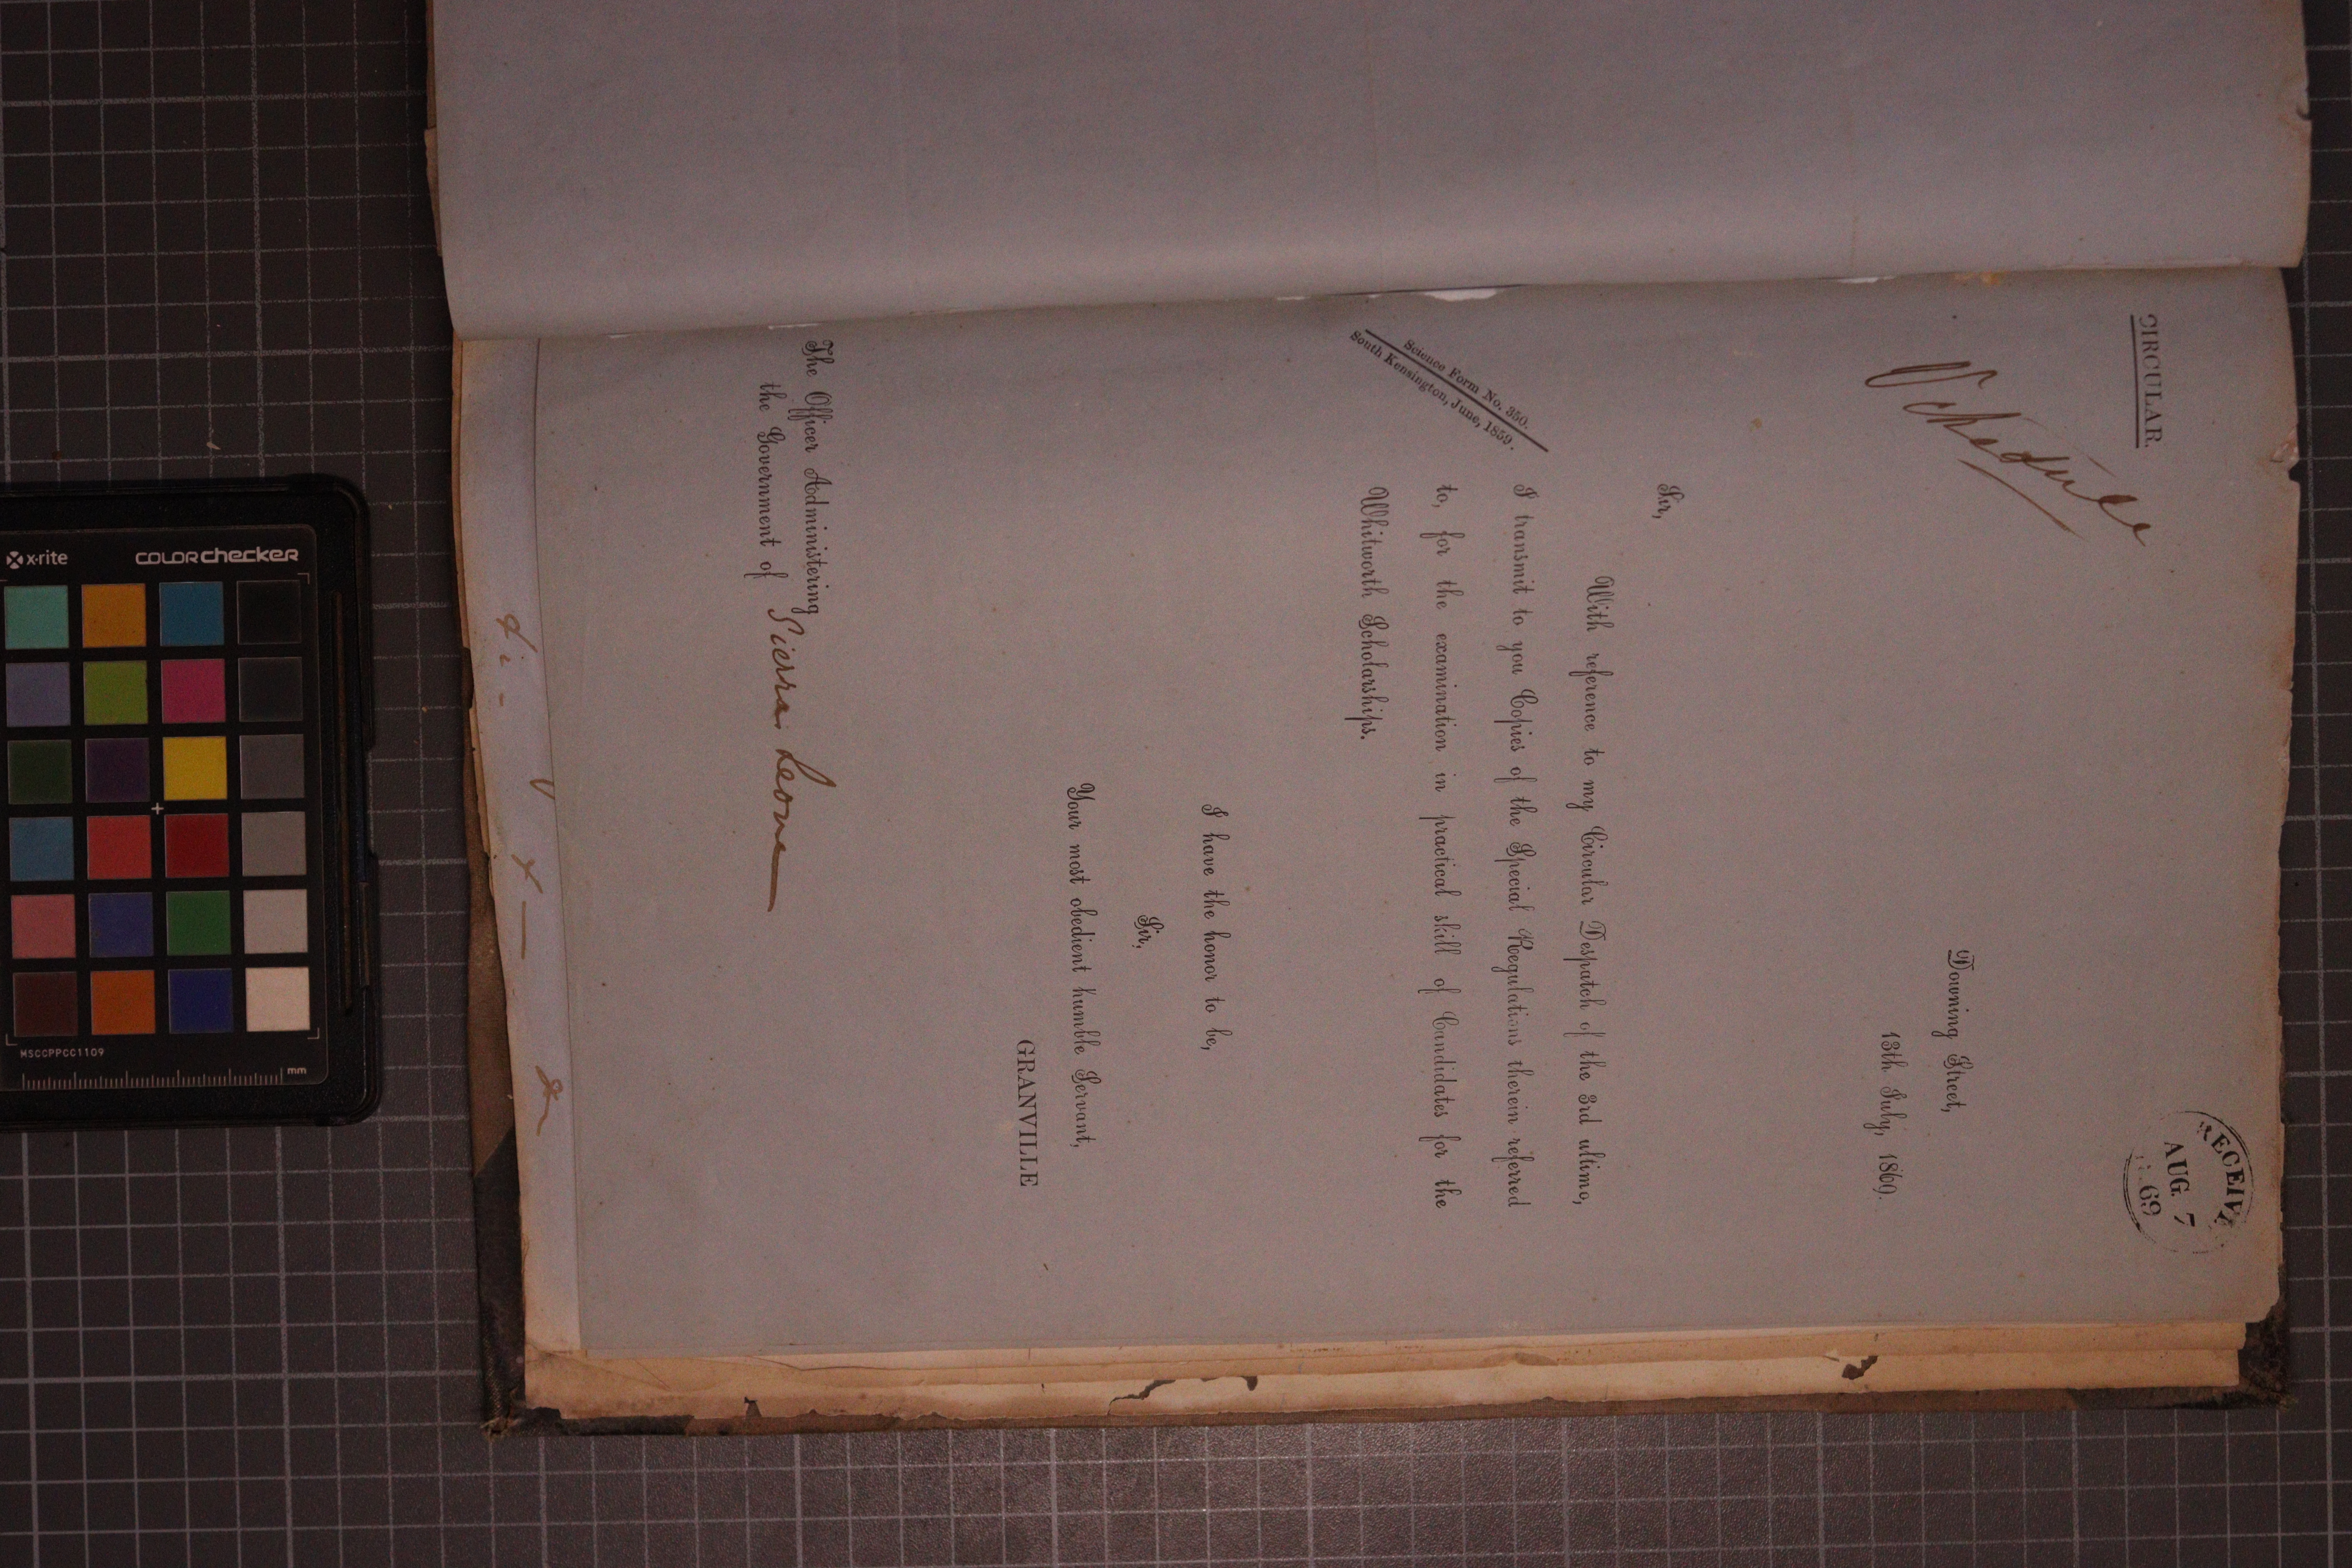 CIRCULAR.
Schedule
RECEIV
AUG 7
69
Downing Street,
13th July, 1869.
Sir,
With reference to my Circular Despatch of the 3rd ultimo,
I transmit to you Copies of the Special Regulations therein referred
to, for the examination in practical skill of Candidates for the
Whitworth Scholarships.
Science Form No. 350.
South Kensington, June, 1859.
I have the honor to be,
Sir,
Your most obedient humble Servant,
GRANVILLE
The Officer Administering
the Government of Sierra Leone
x-rite
colorchecker
MSCCPPCC1109
mm